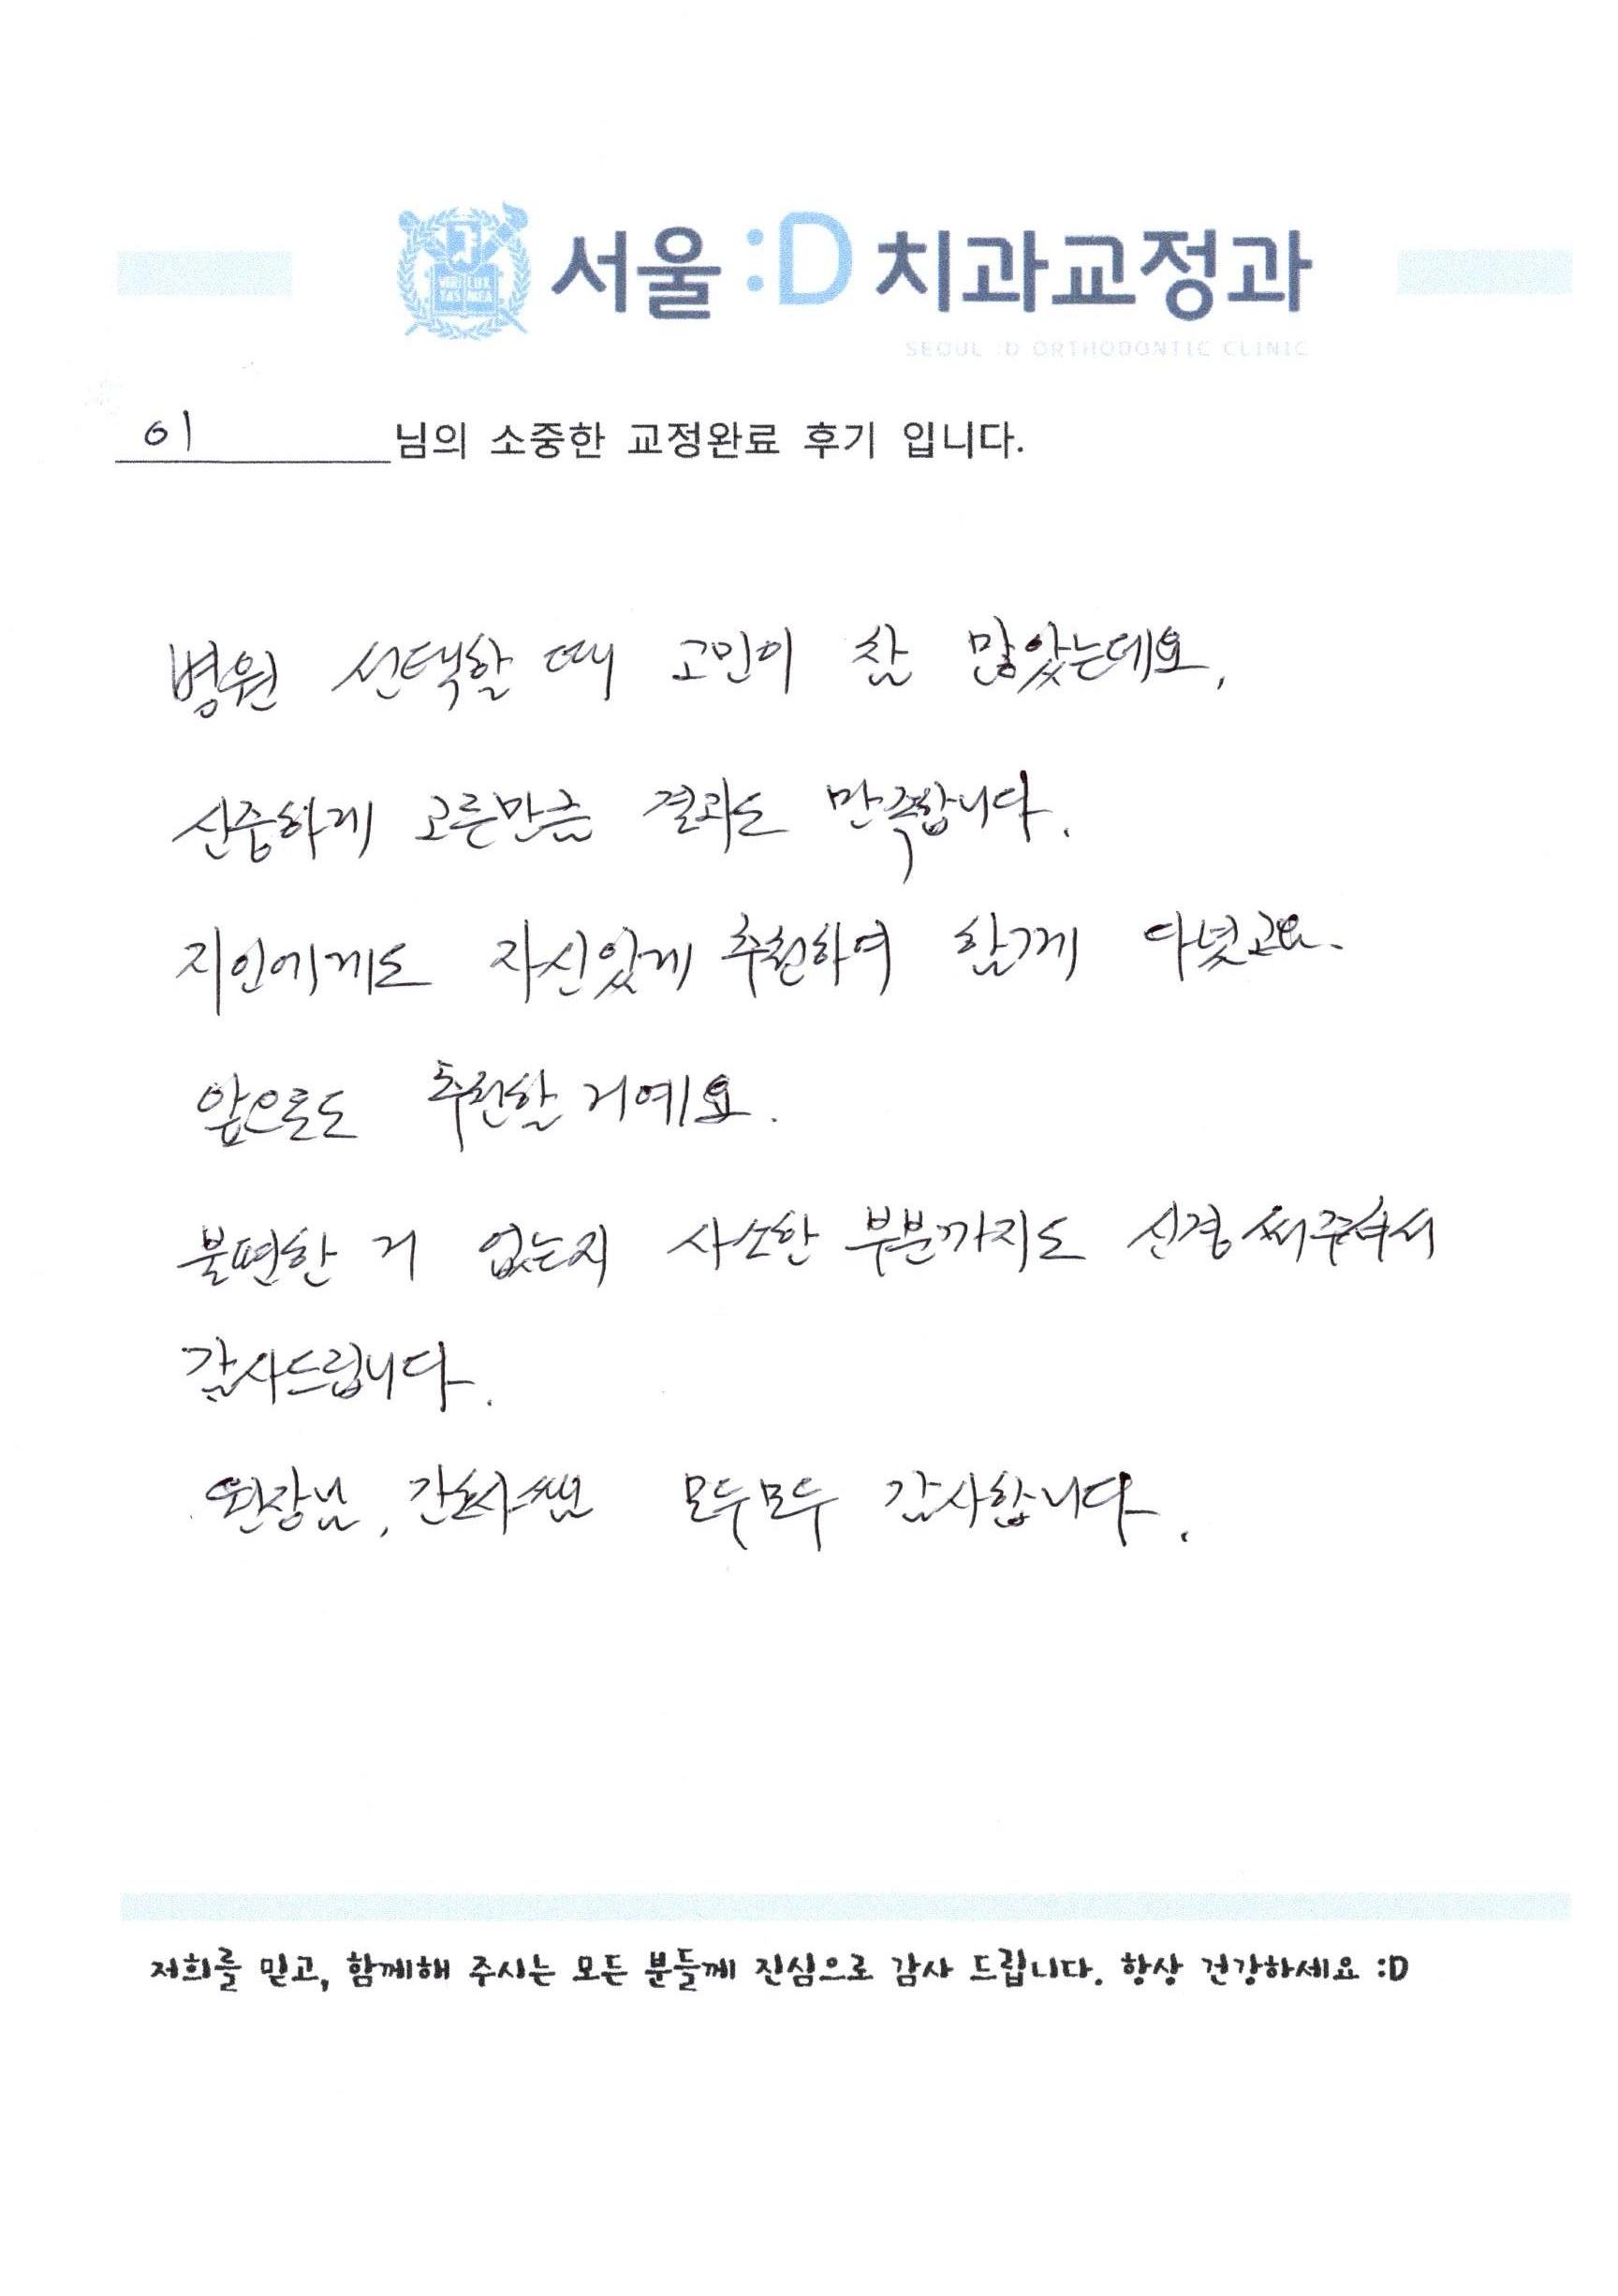 서울 :D 치과교정과
SEOUL :D ORTHODONTIC CLINIC
이 님의 소중한 교정완료 후기 입니다.
병원 선택할 때 고민이 참 많았는데요,
신중하게 고른만큼 결과도 만족합니다.
지인에게도 자신있게 추천하여 함께 다녔고요.
앞으로도 추천할 거예요.
불편한 거 없는지 사소한 부분까지도 신경 써주셔서
감사드립니다.
원장님, 간호사쌤 모두모두 감사합니다.
저희를 믿고, 함께해 주시는 모든 분들께 진심으로 감사 드립니다. 항상 건강하세요 :D